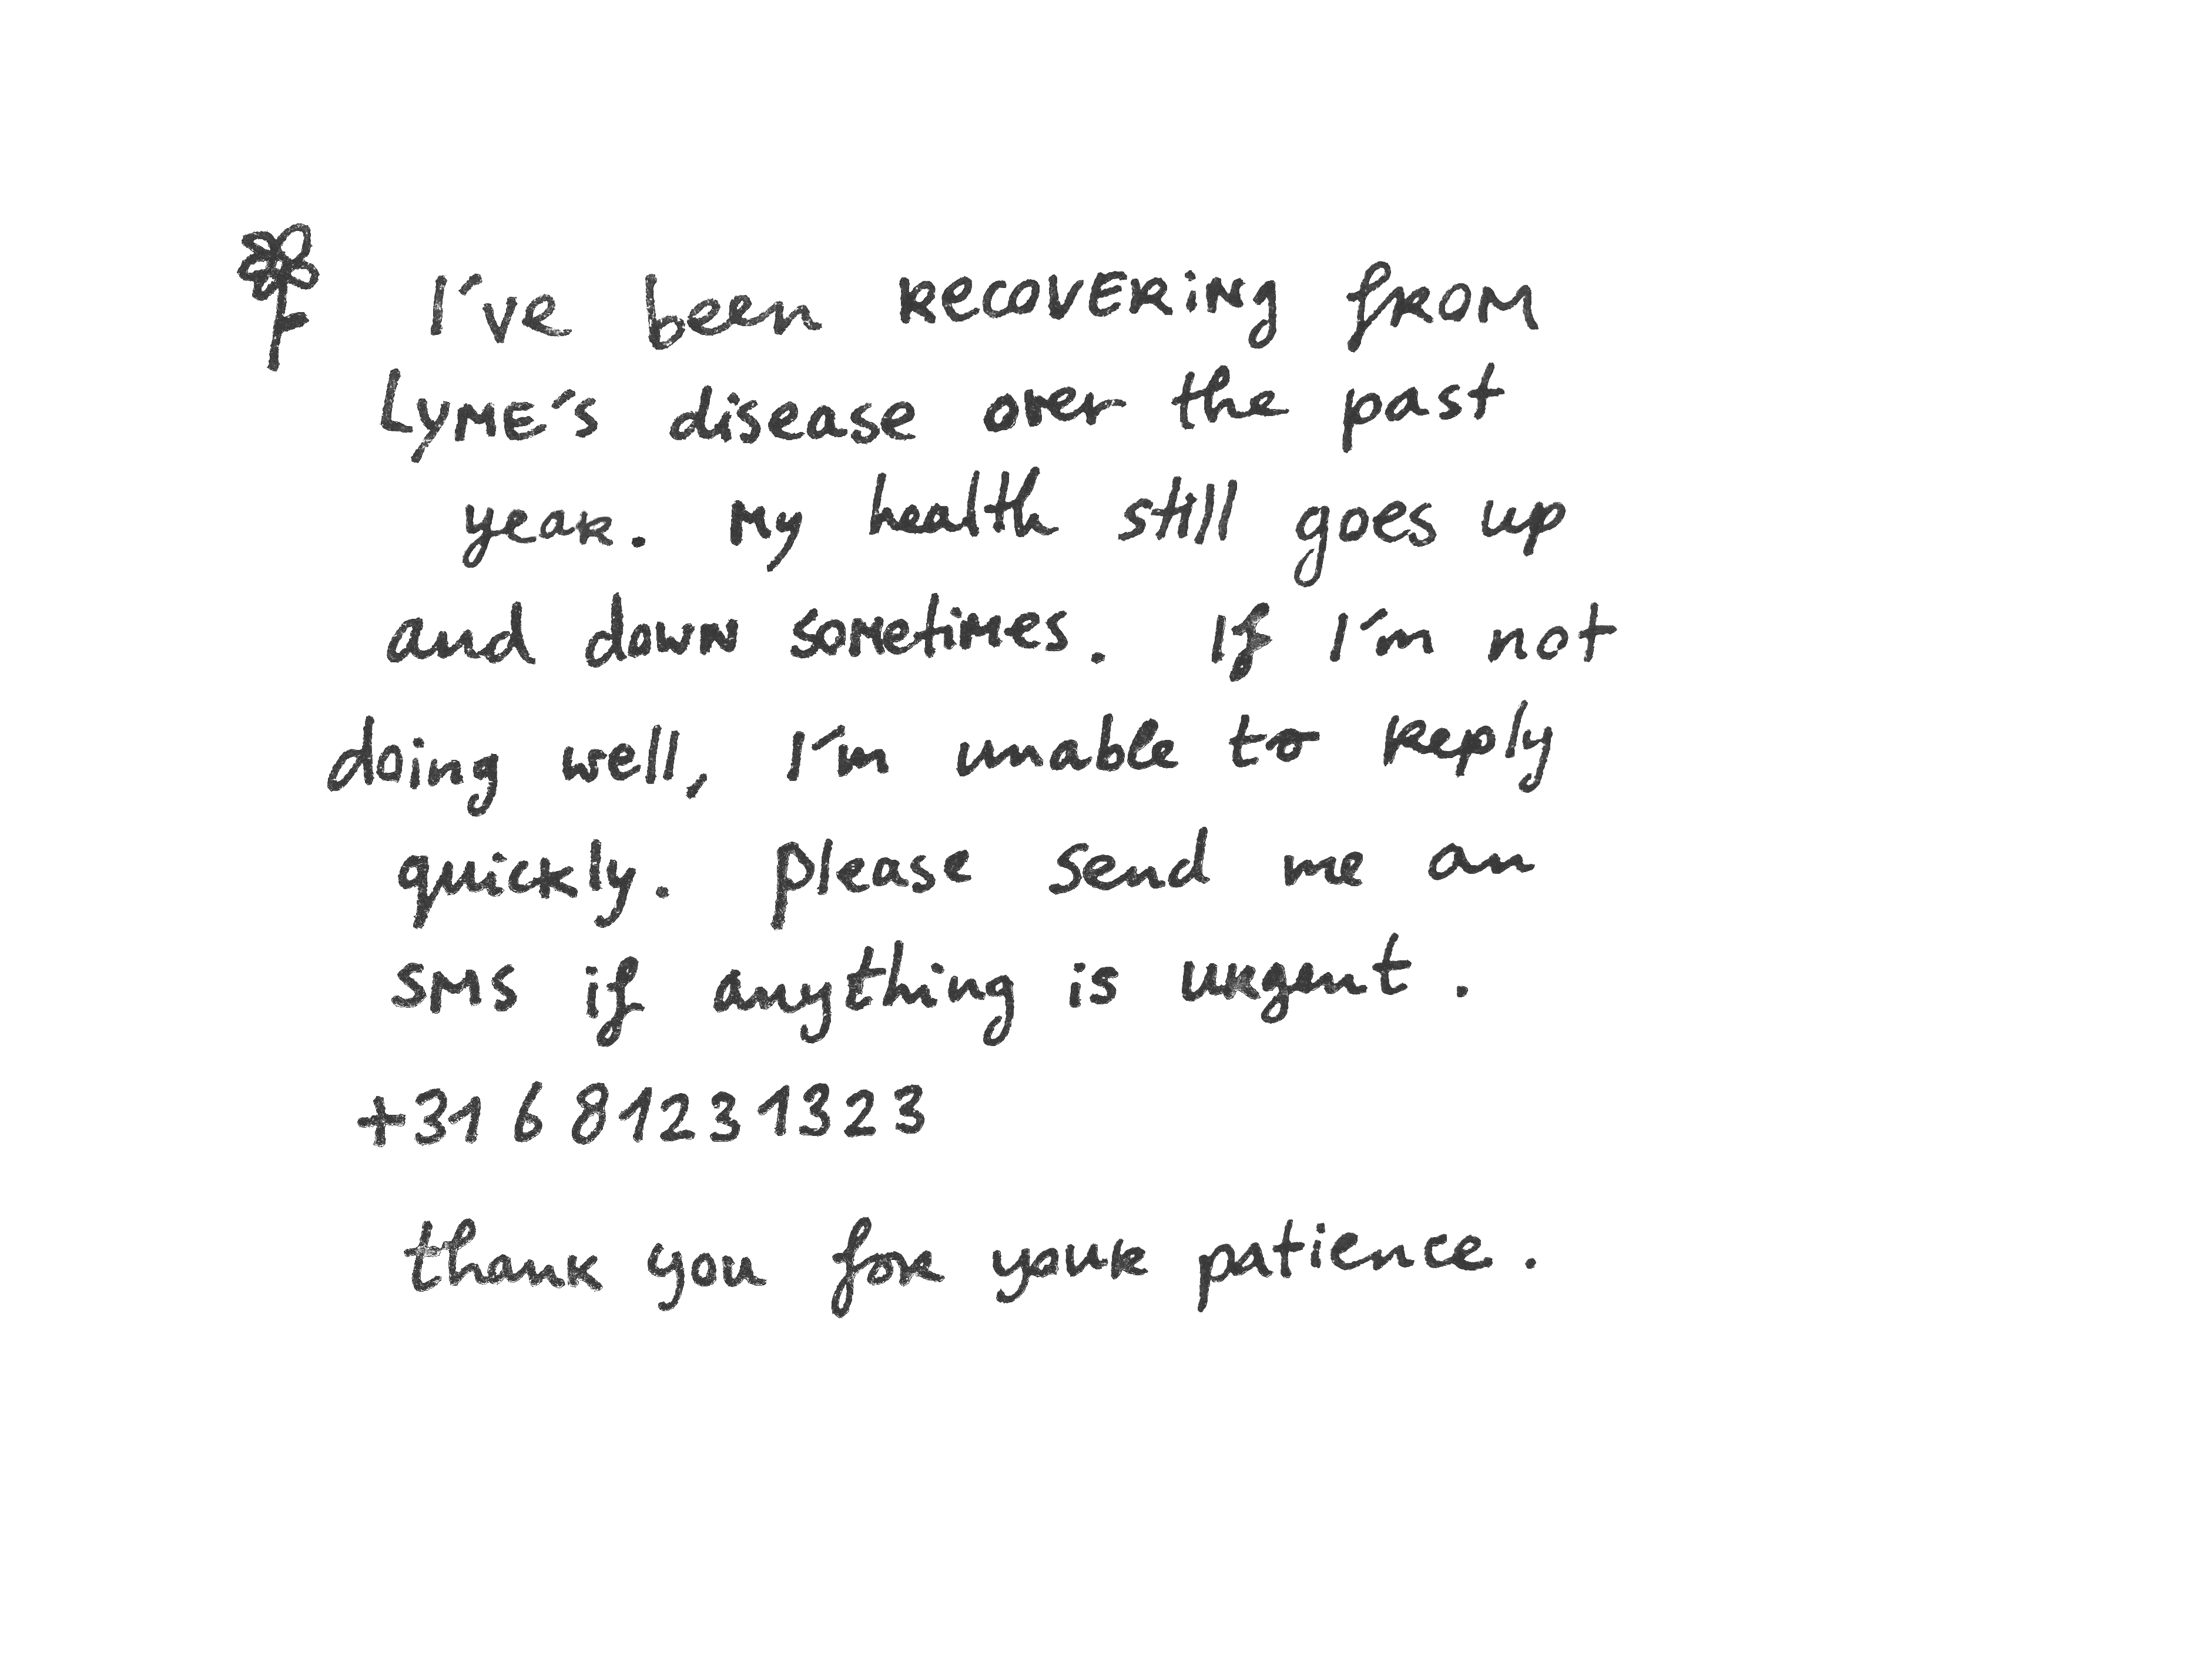 I've been recovering from
Lyme's disease over the past
year. My health still goes up
and down sometimes. If I'm not
doing well, I'm unable to reply
quickly. please send me an
SMS if anything is urgent.
+31 6 81231323
thank you for your patience.